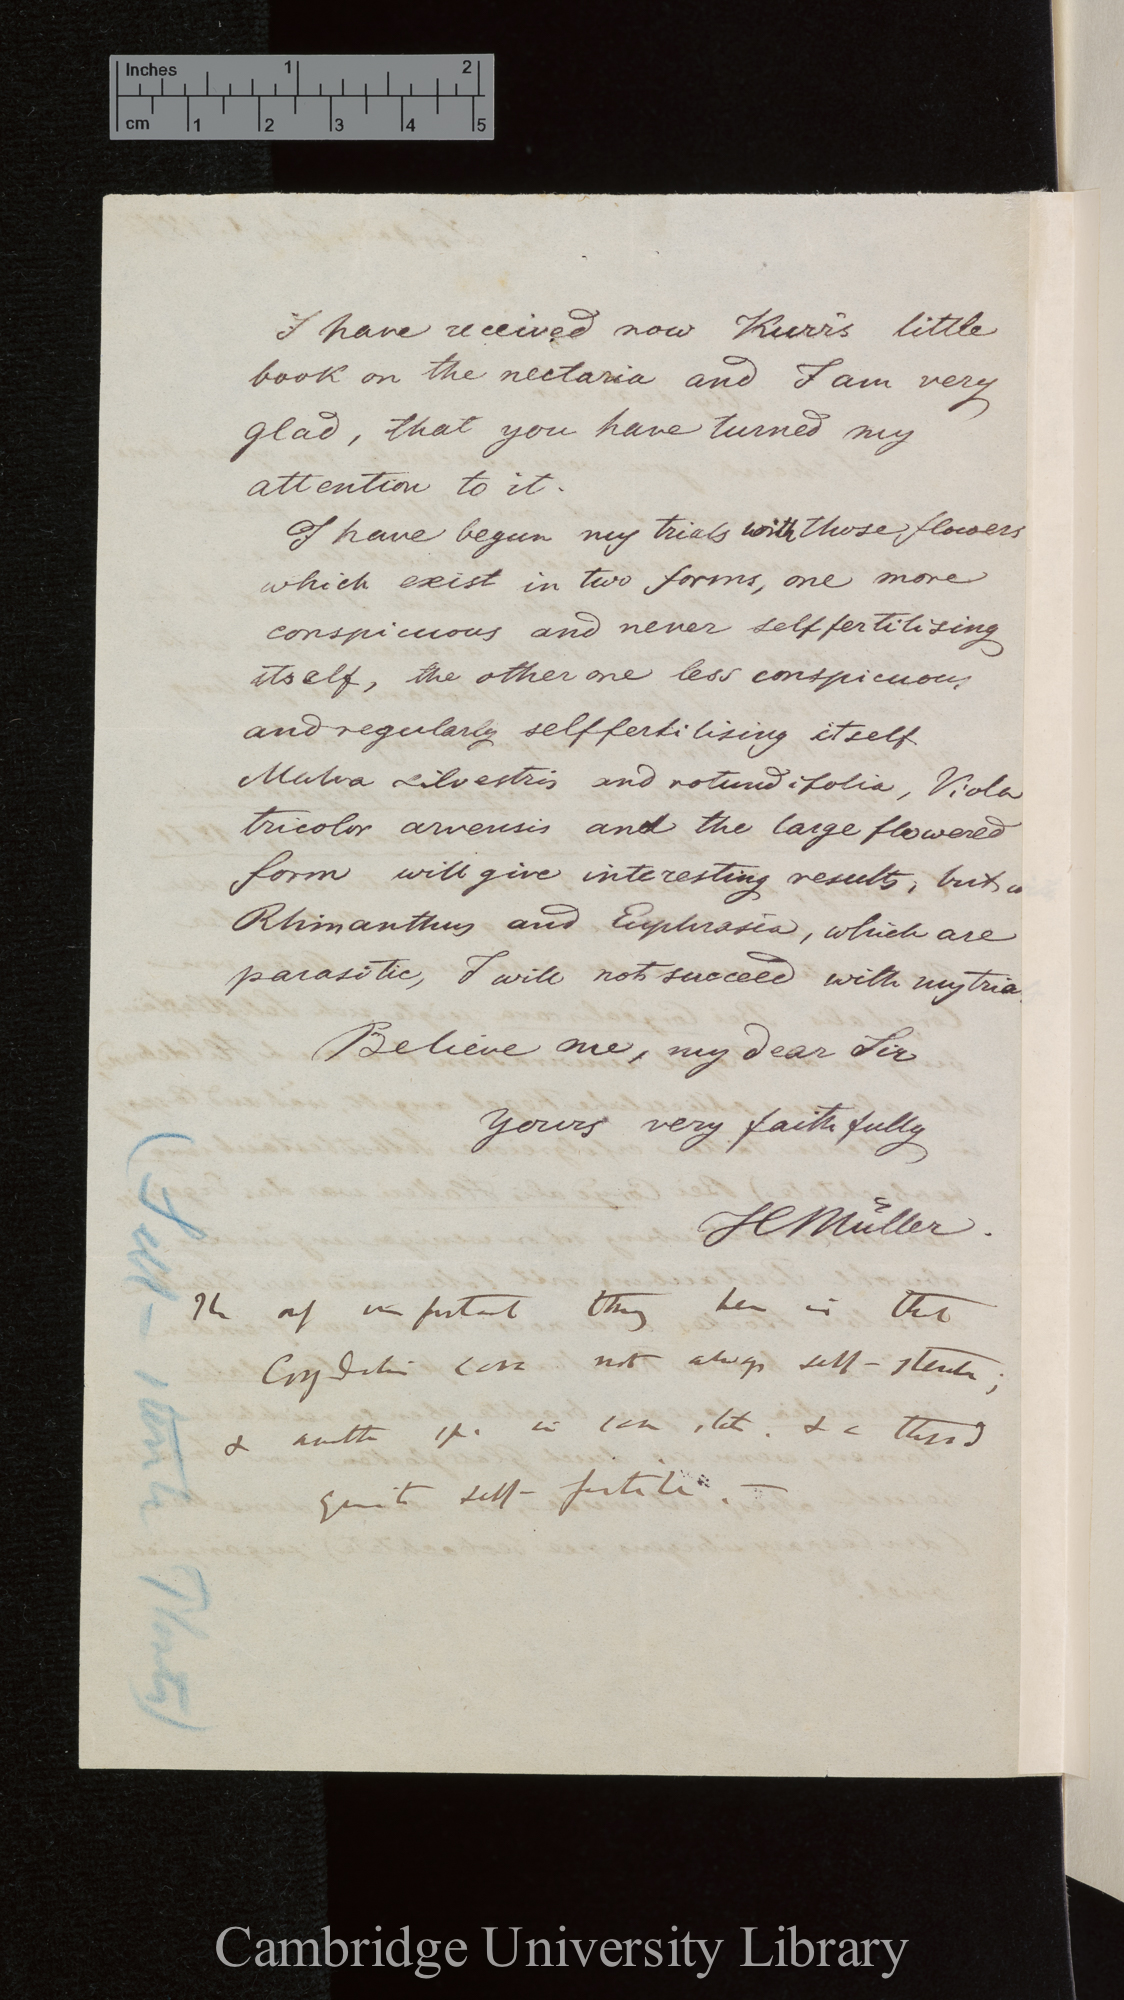 Inches 1 2
cm 1 2 3 4 5
I have received now Kurr's little
book on the nectaria and I am very
glad, that you have turned my
attention to it.
I have begun my trials with those flowers
which exist in two forms, one more
conspicuous and never selffertilising
itself, the other one less conspicuous
and regularly selffertilising itself
Malva silvestris and rotundifolia, Viola
tricolor arvensis and the large flowered
form will give interesting results, but
Rhinanthus and Euphrasia, which are
parasitic, I will not succeed with my tria
Believe me, my dear Sir
yours very faithfully
H Müller.
The important thing here is that
Corydalis cava not always self-sterile;
& another sp. is & a third
quite self-fertile. —
(Self-sterile Plants)
Cambridge University Library